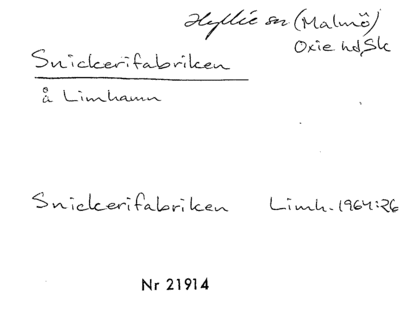 Hyllie sn (Malmö)
Oxie hd, Sk
Snickerifabriken
å Limhamn
Snickerifabriken Limh. 1964:26
Nr 21914